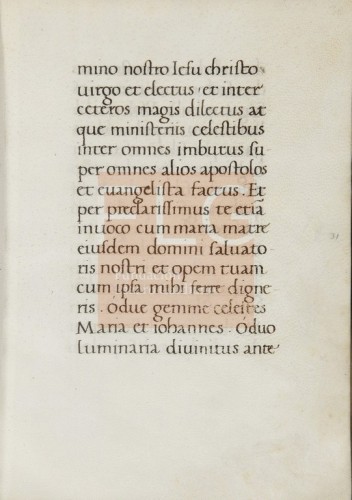 mino nostro Iesu christo
uirgo et electus, et inter
ceteros magis dilectus at
que ministeriis celestibus
inter omnes imbutus su
per omnes alios apostolos
et euangelista factus. Et
per preclarissimus te etiã
inuoco cum maria matre
eiusdem domini saluato
ris nostri et opem tuam
cum ipsa mihi ferre digne
ris. Odue gemme celestes
Maria et iohannes. Oduo
luminaria diuinitus ante
31
FLG